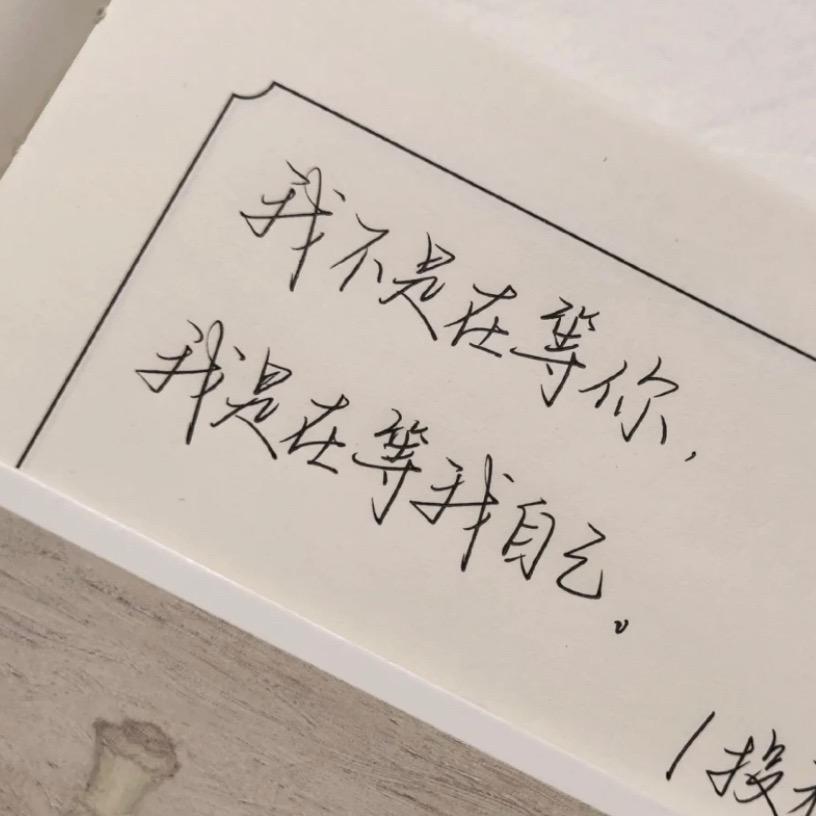 我不是在等你,
我是在等我自己。
/投稿